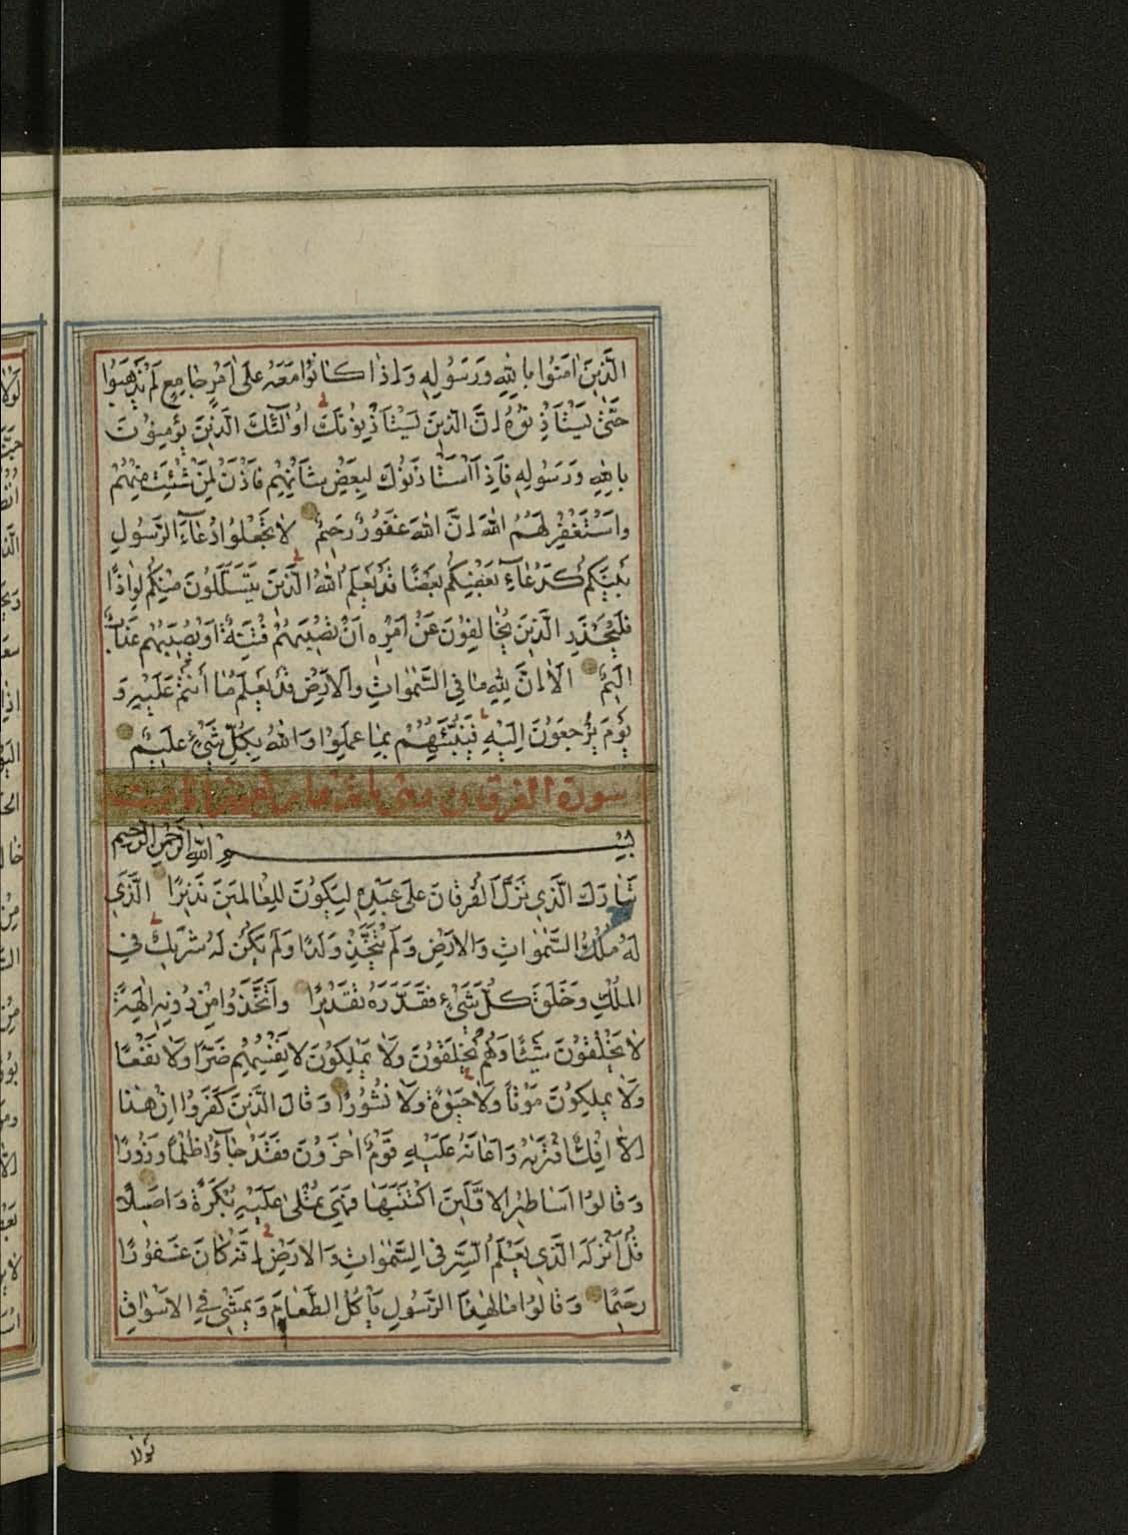 الَّذِينَ اٰمَنُوا بِاللّٰهِ وَرَسُولِهِ وَاِذَا كَانُوا مَعَهُ عَلٰى اَمْرٍ جَامِعٍ لَمْ يَذْهَبُوا
حَتّٰى يَسْتَأْذِنُوهُ اِنَّ الَّذِينَ يَسْتَأْذِنُونَكَ اُولٰٓئِكَ الَّذِينَ يُؤْمِنُونَ
بِاللّٰهِ وَرَسُولِهِ فَاِذَا اسْتَأْذَنُوكَ لِبَعْضِ شَأْنِهِمْ فَأْذَنْ لِمَنْ شِئْتَ مِنْهُمْ
وَاسْتَغْفِرْ لَهُمُ اللّٰهَ اِنَّ اللّٰهَ غَفُورٌ رَحِيمٌ لَا تَجْعَلُوا دُعَآءَ الرَّسُولِ
بَيْنَكُمْ كَدُعَآءِ بَعْضِكُمْ بَعْضًا قَدْ يَعْلَمُ اللّٰهُ الَّذِينَ يَتَسَلَّلُونَ مِنْكُمْ لِوَاذًا
فَلْيَحْذَرِ الَّذِينَ يُخَالِفُونَ عَنْ اَمْرِهِ اَنْ تُصِيبَهُمْ فِتْنَةٌ اَوْ يُصِيبَهُمْ عَذَابٌ
اَلِيمٌ اَلَا اِنَّ لِلّٰهِ مَا فِي السَّمٰوَاتِ وَالْاَرْضِ قَدْ يَعْلَمُ مَا اَنْتُمْ عَلَيْهِ وَ
يَوْمَ يُرْجَعُونَ اِلَيْهِ فَيُنَبِّئُهُمْ بِمَا عَمِلُوا وَاللّٰهُ بِكُلِّ شَيْءٍ عَلِيمٌ
سورة الفرقان
بِسْمِ اللّٰهِ الرَّحْمٰنِ الرَّحِيمِ
تَبَارَكَ الَّذِي نَزَّلَ الْفُرْقَانَ عَلٰى عَبْدِهِ لِيَكُونَ لِلْعَالَمِينَ نَذِيرًا الَّذِي
لَهُ مُلْكُ السَّمٰوَاتِ وَالْاَرْضِ وَلَمْ يَتَّخِذْ وَلَدًا وَلَمْ يَكُنْ لَهُ شَرِيكٌ فِي
الْمُلْكِ وَخَلَقَ كُلَّ شَيْءٍ فَقَدَّرَهُ تَقْدِيرًا وَاتَّخَذُوا مِنْ دُونِهِ اٰلِهَةً
لَا يَخْلُقُونَ شَيْئًا وَهُمْ يُخْلَقُونَ وَلَا يَمْلِكُونَ لِاَنْفُسِهِمْ ضَرًّا وَلَا نَفْعًا
وَلَا يَمْلِكُونَ مَوْتًا وَلَا حَيٰوةً وَلَا نُشُورًا وَقَالَ الَّذِينَ كَفَرُوا اِنْ هٰذَا
اِلَّا اِفْكٌ افْتَرٰيهُ وَاَعَانَهُ عَلَيْهِ قَوْمٌ اٰخَرُونَ فَقَدْ جَآؤُا ظُلْمًا وَزُورًا
وَقَالُوا اَسَاطِيرُ الْاَوَّلِينَ اكْتَتَبَهَا فَهِيَ تُمْلٰى عَلَيْهِ بُكْرَةً وَاَصِيلًا
قُلْ اَنْزَلَهُ الَّذِي يَعْلَمُ السِّرَّ فِي السَّمٰوَاتِ وَالْاَرْضِ اِنَّهُ كَانَ غَفُورًا
رَحِيمًا وَقَالُوا مَالِ هٰذَا الرَّسُولِ يَأْكُلُ الطَّعَامَ وَيَمْشِي فِي الْاَسْوَاقِ
لولا